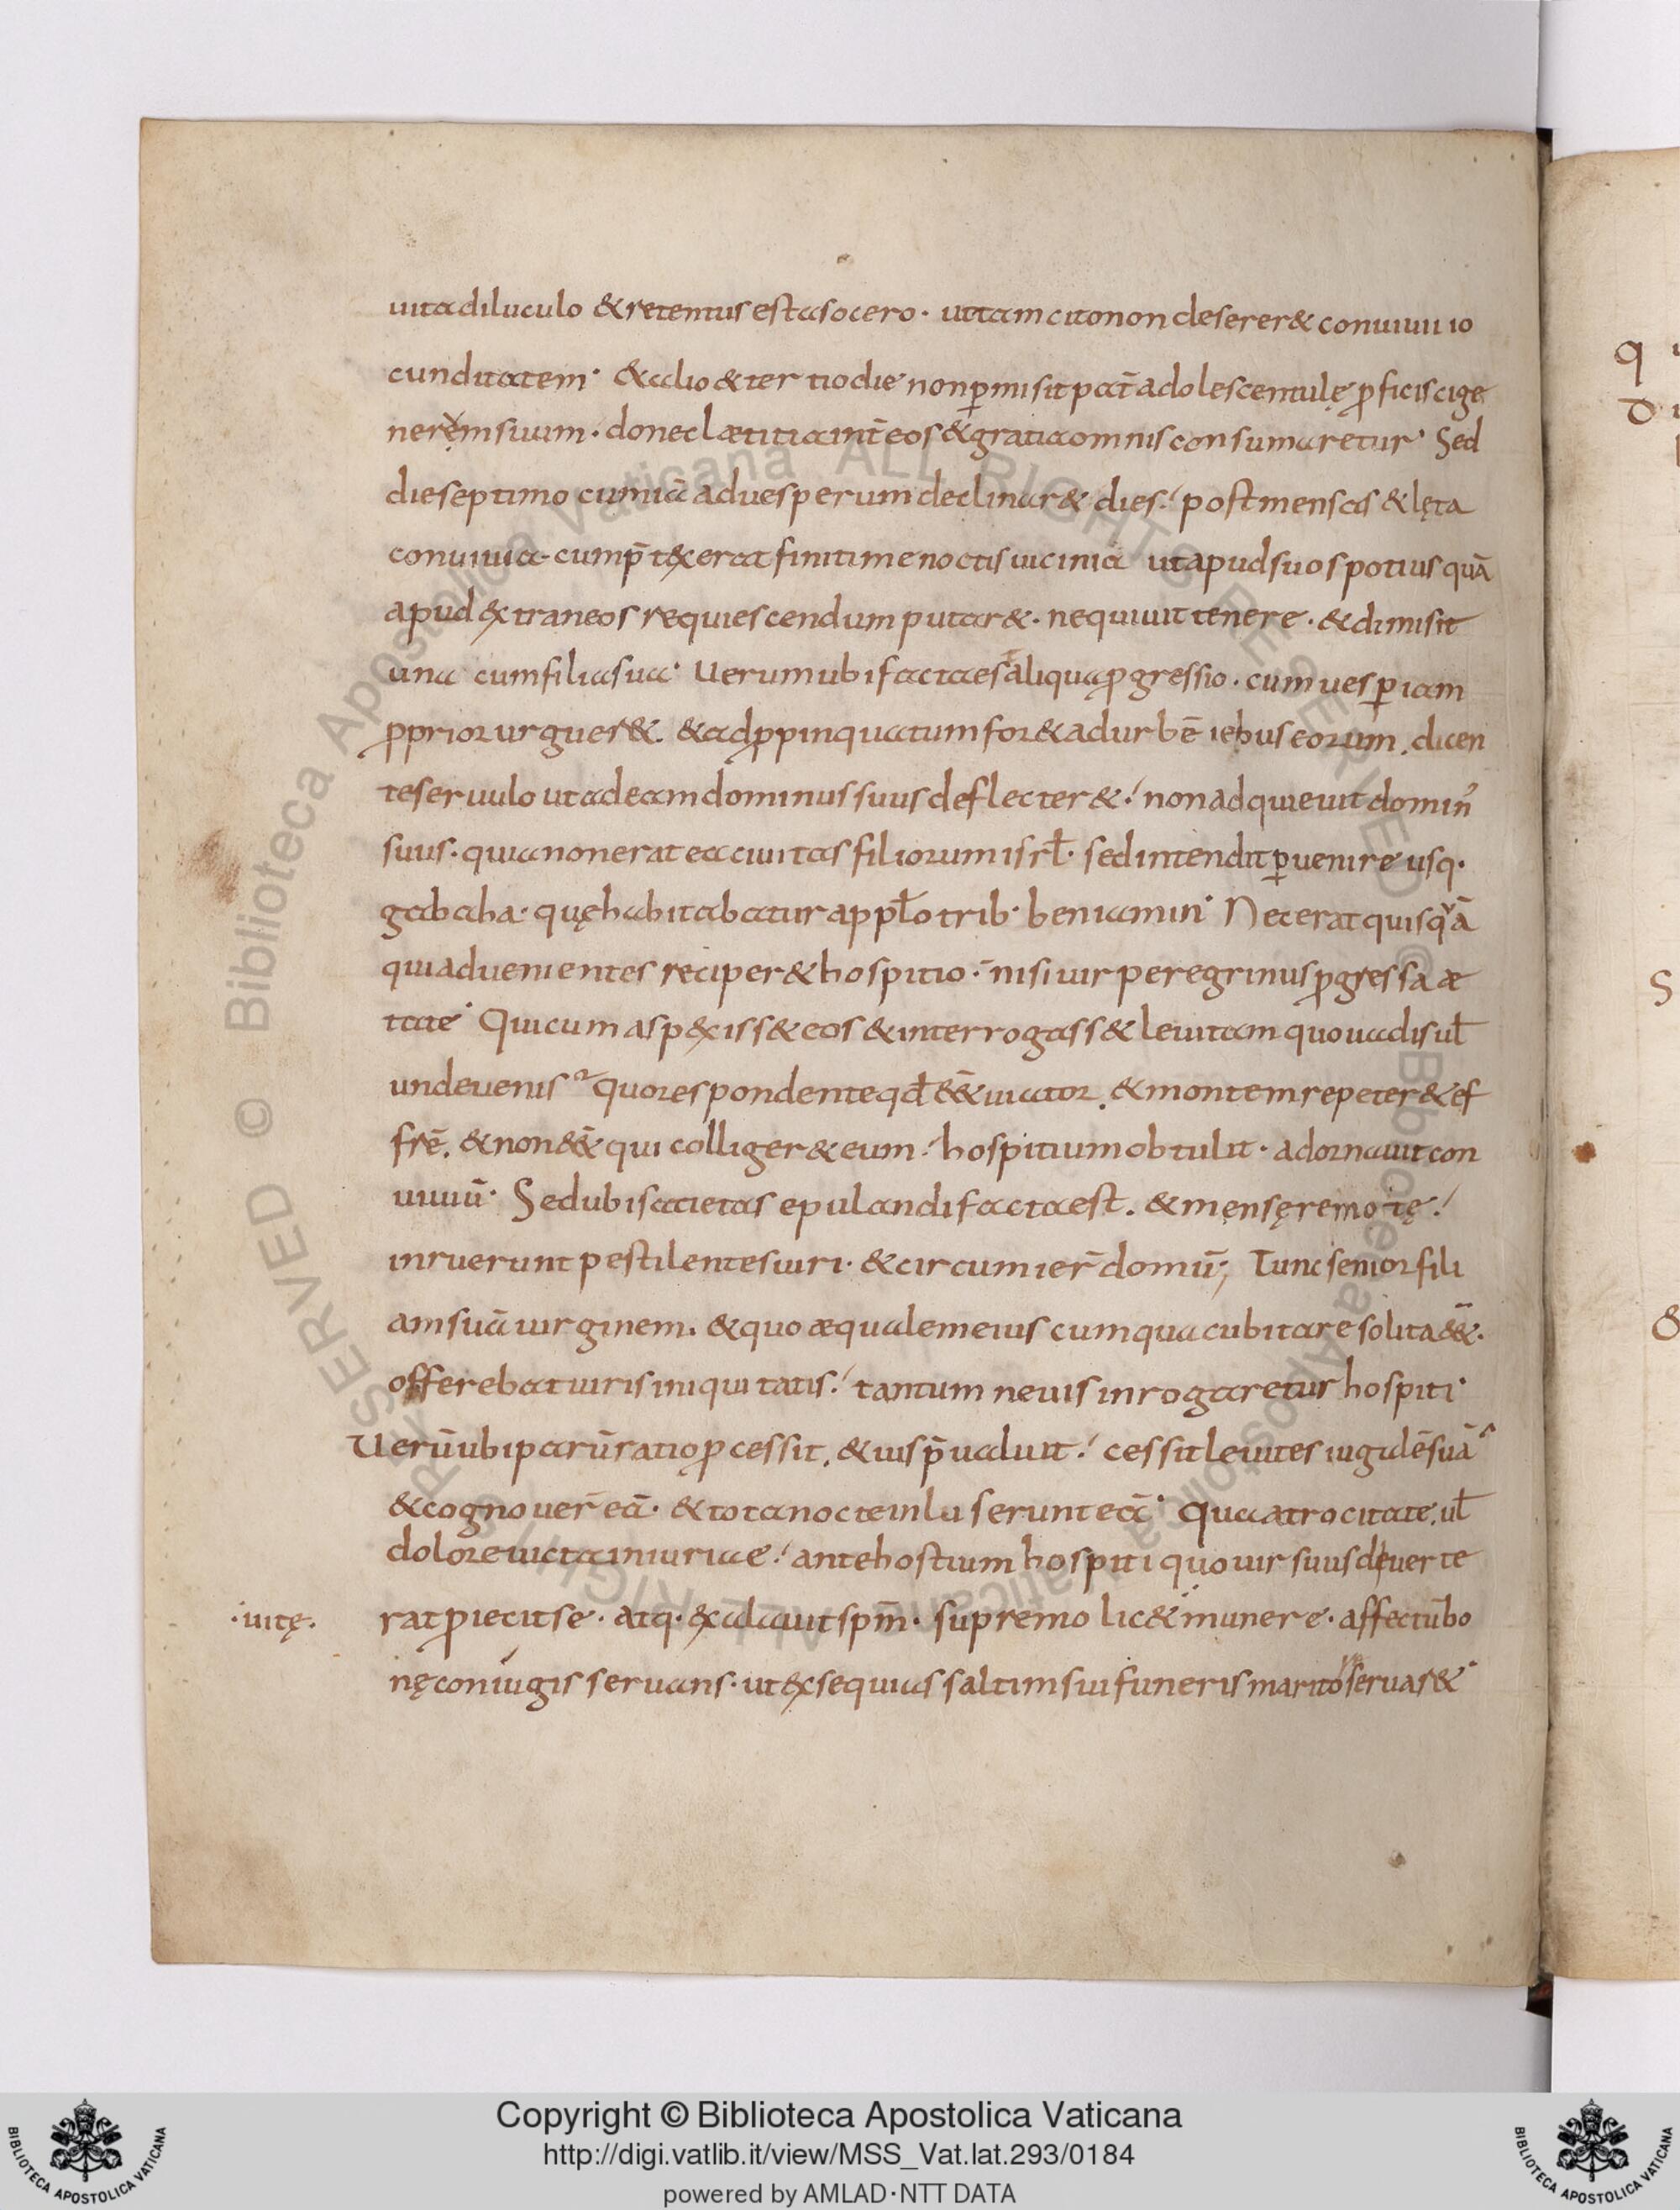 uita diluculo & retentus est a socero· ut tam cito non deserer& conuiuii io
cunditatem· & alio & tertio die non p̲misit pat̄ adolescentulę ꝓficisci ge
nerẹm suum· donec lætitia int̄ eos & gratia omnis consumaretur· Sed
die septimo cum iā ad uesperum declinar& dies· post mensas & lęta
conuiuia· cum p̄t&xerat finitimę noctis uiciniā ut apud suos potius quā
apud &xtraneos requiescendum putar&· nequiuit tenere· & dimisit
una cum filia sua· Uerum ubi facta est aliqua ꝓgressio· cum uesp̲ iam
ꝓprior urguer&· & adꝓpinquatum for& ad urbē iebuseorum· dicen
te seruulo ut ad eam dominus suus deflecter&· non adquieuit domin̉
suus· quia non erat ea ciuitas filiorum isrł· sed intendit p̲uenire usq·
gabaha· quę habitabatur a ppło trib· beniamin· Nec erat quisqꝰā
qui aduenientes reciper& hospitio· nisi uir peregrinus ꝓgressa æ
tate· Qui cum asp&xiss& eos & interrogass& leuitam quo uadis uł
unde uenis? quo respondente qđ e&̄ uiator· & montem repeter& ef
frē· & non e&̄ qui colliger& eum· hospitium obtulit· adornauit con
uiuiū· Sed ubi satietas epulandi facta est· & mensę remotę·
inruerunt pestilentes uiri· & circumier̄ domū; Tunc senior fili
am suā uirginem· & quo æqualem eius cum qua cubitare solita e&̄·
offerebat uiris iniquitatis· tantum ne uis inrogaretur hospiti·
Uerū ubi parū ratio ꝓcessit· & uis p̄ualuit· cessit leuites iugalē suā
& cognouer̄ eā· & tota nocte inluserunt eā· Qua atrocitate· uł
dolore uicta iniuriae· ante hostium hospiti quo uir suus deuerte
·uitę· rat ꝓiecit se· atq· &xalauit spm̄· supremo lic& munere· affectū bo
nę coniugis seruans· ut &xsequias saltim sui funeris marito seruar&·
Copyright © Biblioteca Apostolica Vaticana
http://digi.vatlib.it/view/MSS_Vat.lat.293/0184
powered by AMLAD·NTT DATA